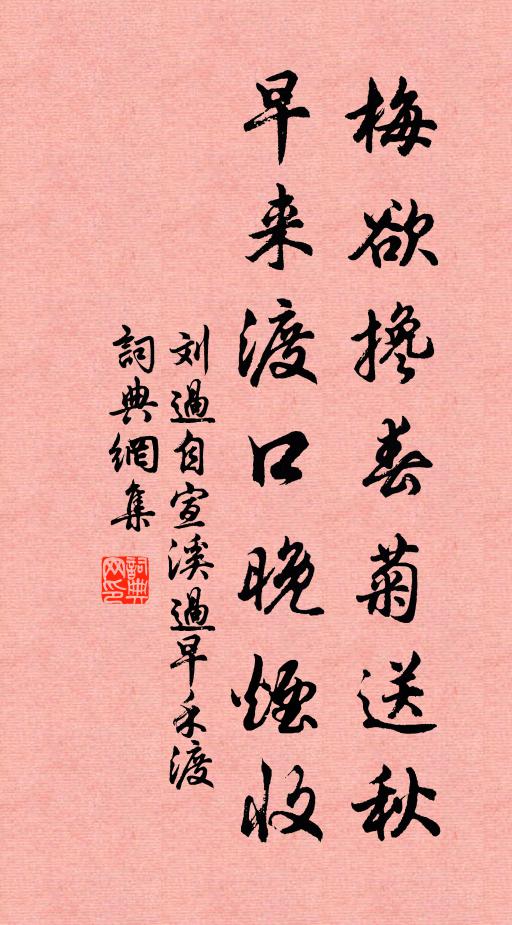 梅欲搀春菊送秋
早来渡口晚烟收
刘過自宣溪過早禾渡
詞典網集
詞典网印